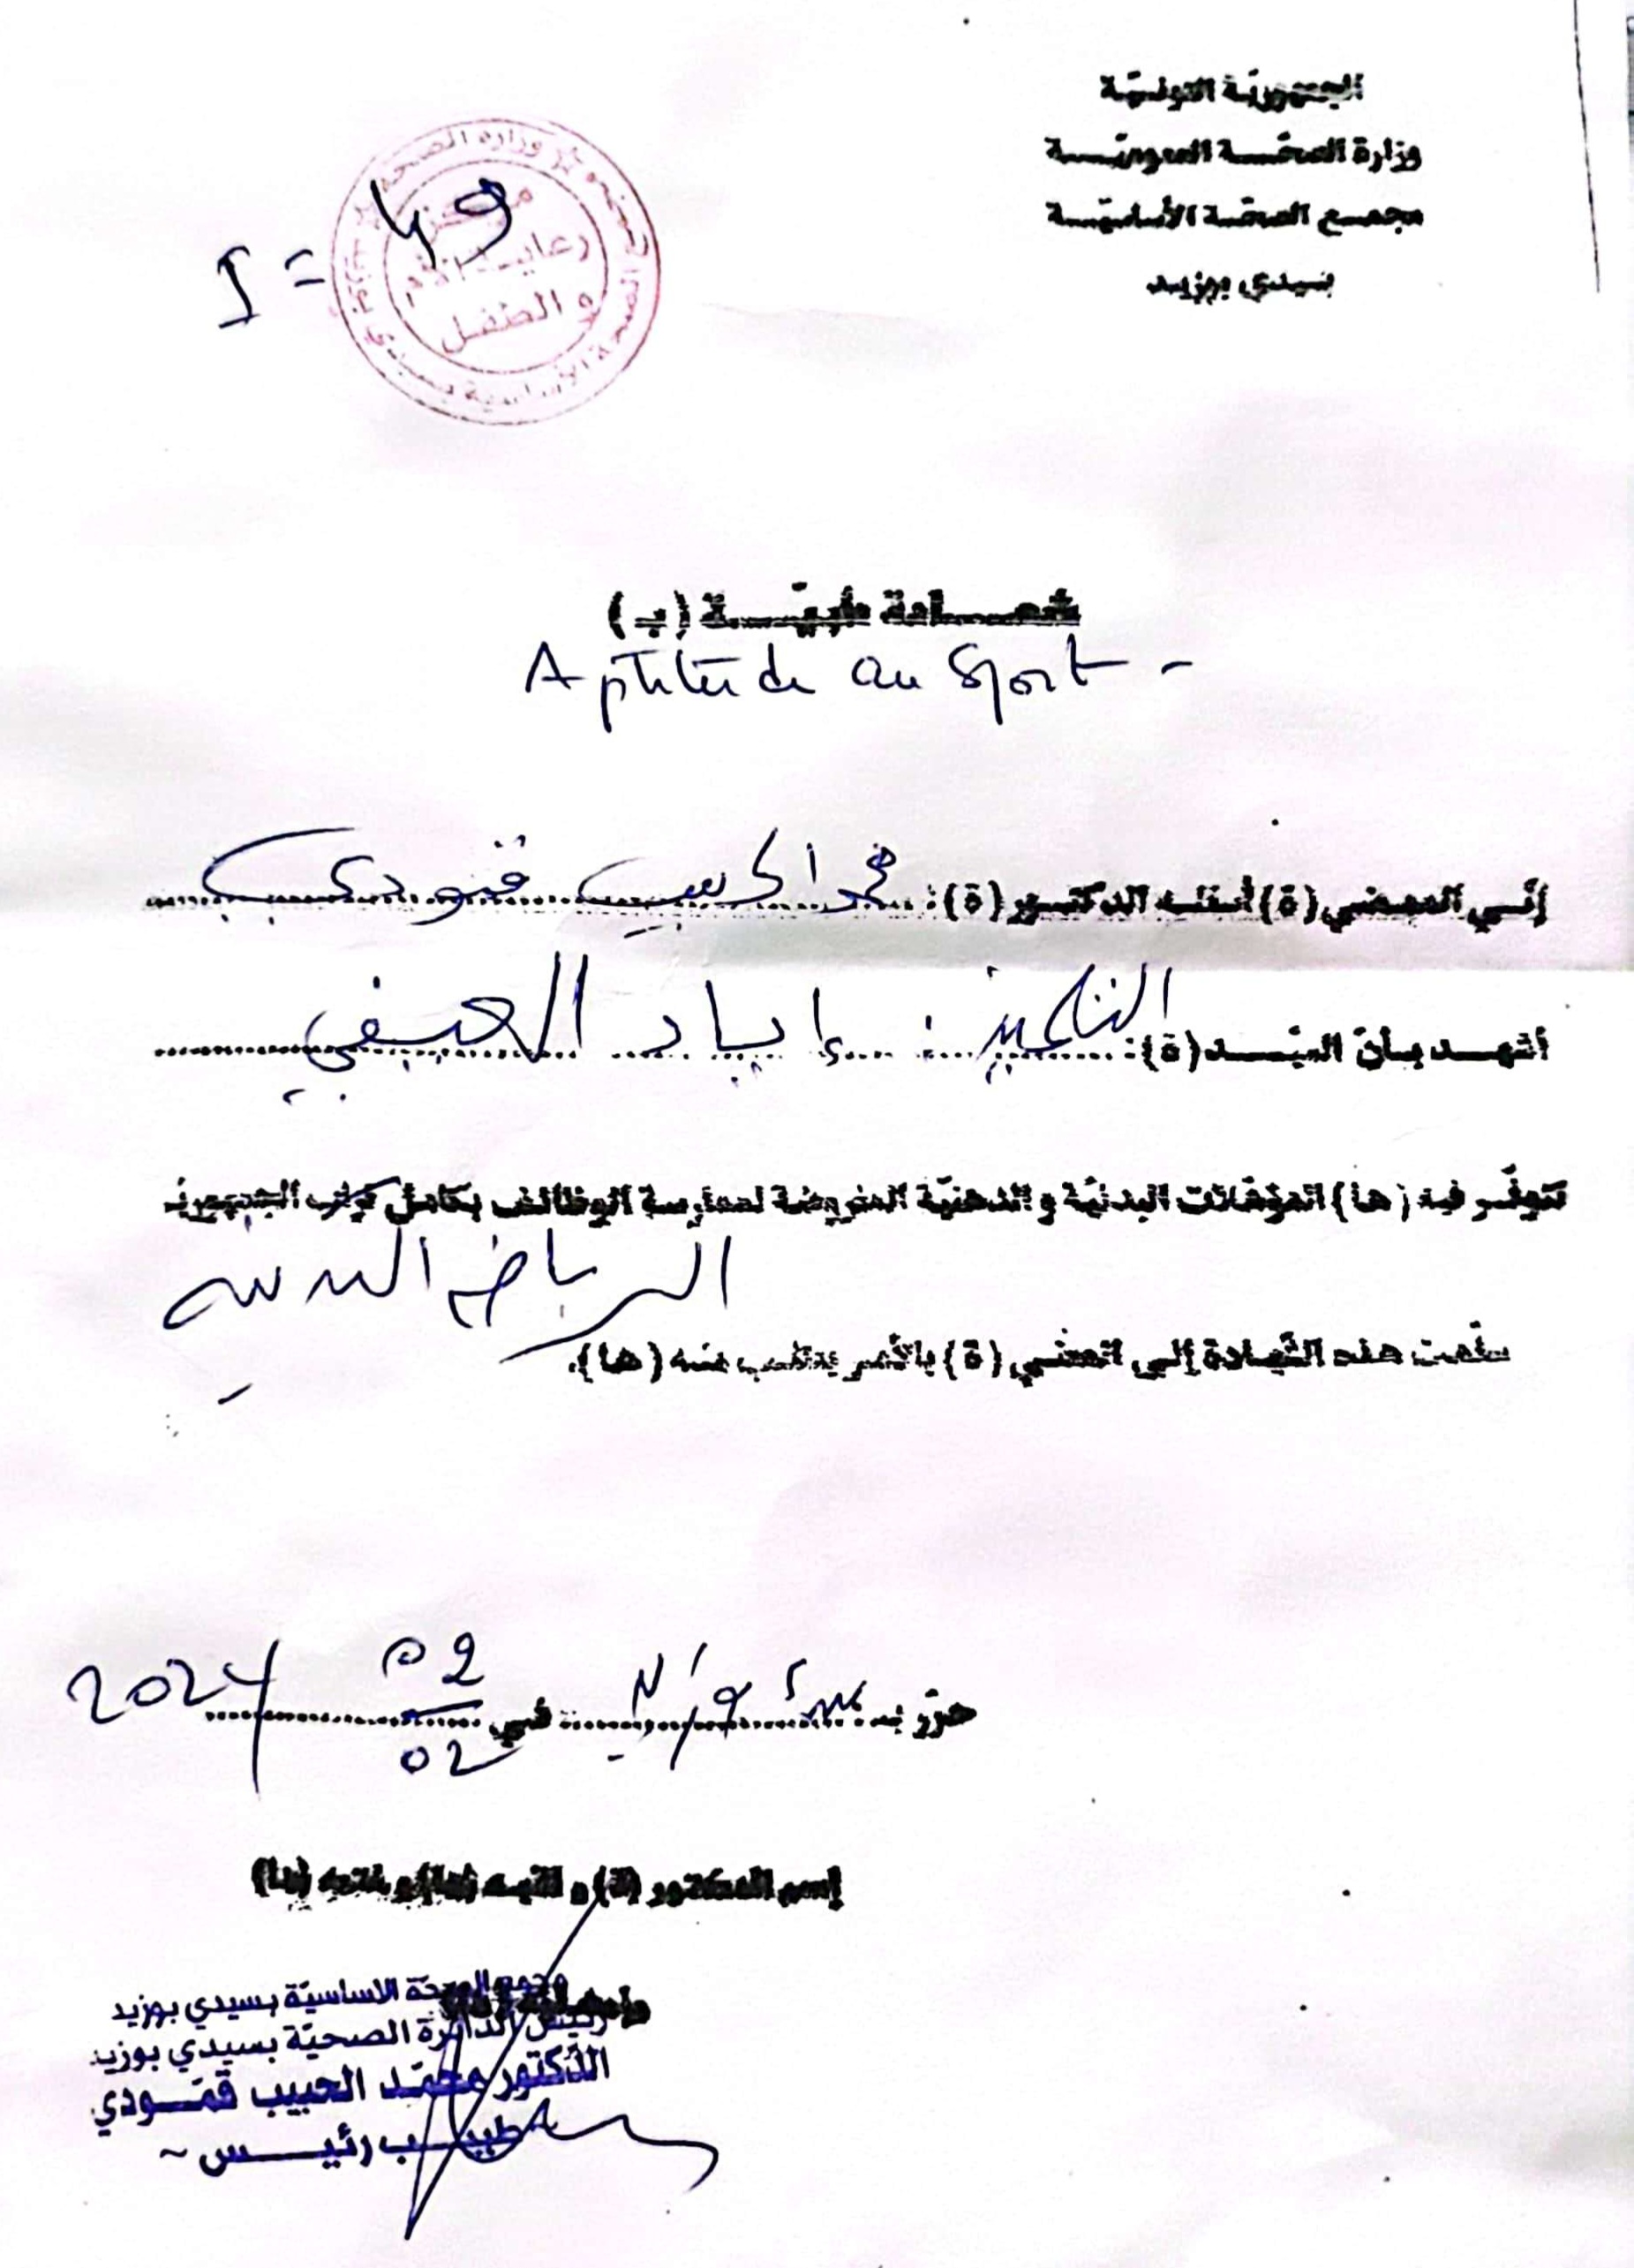 الجمهوريّة التونسيّة
وزارة الصحّة العموميّة
مجمع الصحّة الأساسيّة
بسيدي بوزيد
وزارة الصحة
الصحة الأساسية بسيدي
مركز
رعاية الأم
و الطفل
I = 49
شهادة طبيّة (بـ)
Aptitude au Sport -
إنّي الممضي (ة) أسفله الدكتور (ة) : محمد الحبيب قمودي
أشهد بأنّ السيّد (ة) : التلميذ : إياد العيفي
تتوفّر فيه (ها) المؤهّلات البدنيّة و الذهنيّة المفروضة لممارسة الوظائف بكامل تراب الجمهوريّة
الرياضة البدنية
سلّمت هذه الشّهادة إلى المعني (ة) بالأمر بطلب منه (ها).
حرّر بـ سيدي بوزيد في 02 / 02 / 2024
إسم الدكتور (ة) و لقبه (ها) و ختمه (ها)
وإمضائه (ها)
مجمع الصحّة الاساسيّة بسيدي بوزيد
رئيس الدائرة الصحيّة بسيدي بوزيد
الدّكتور محمّد الحبيب قمّودي
طبيب رئيس ~